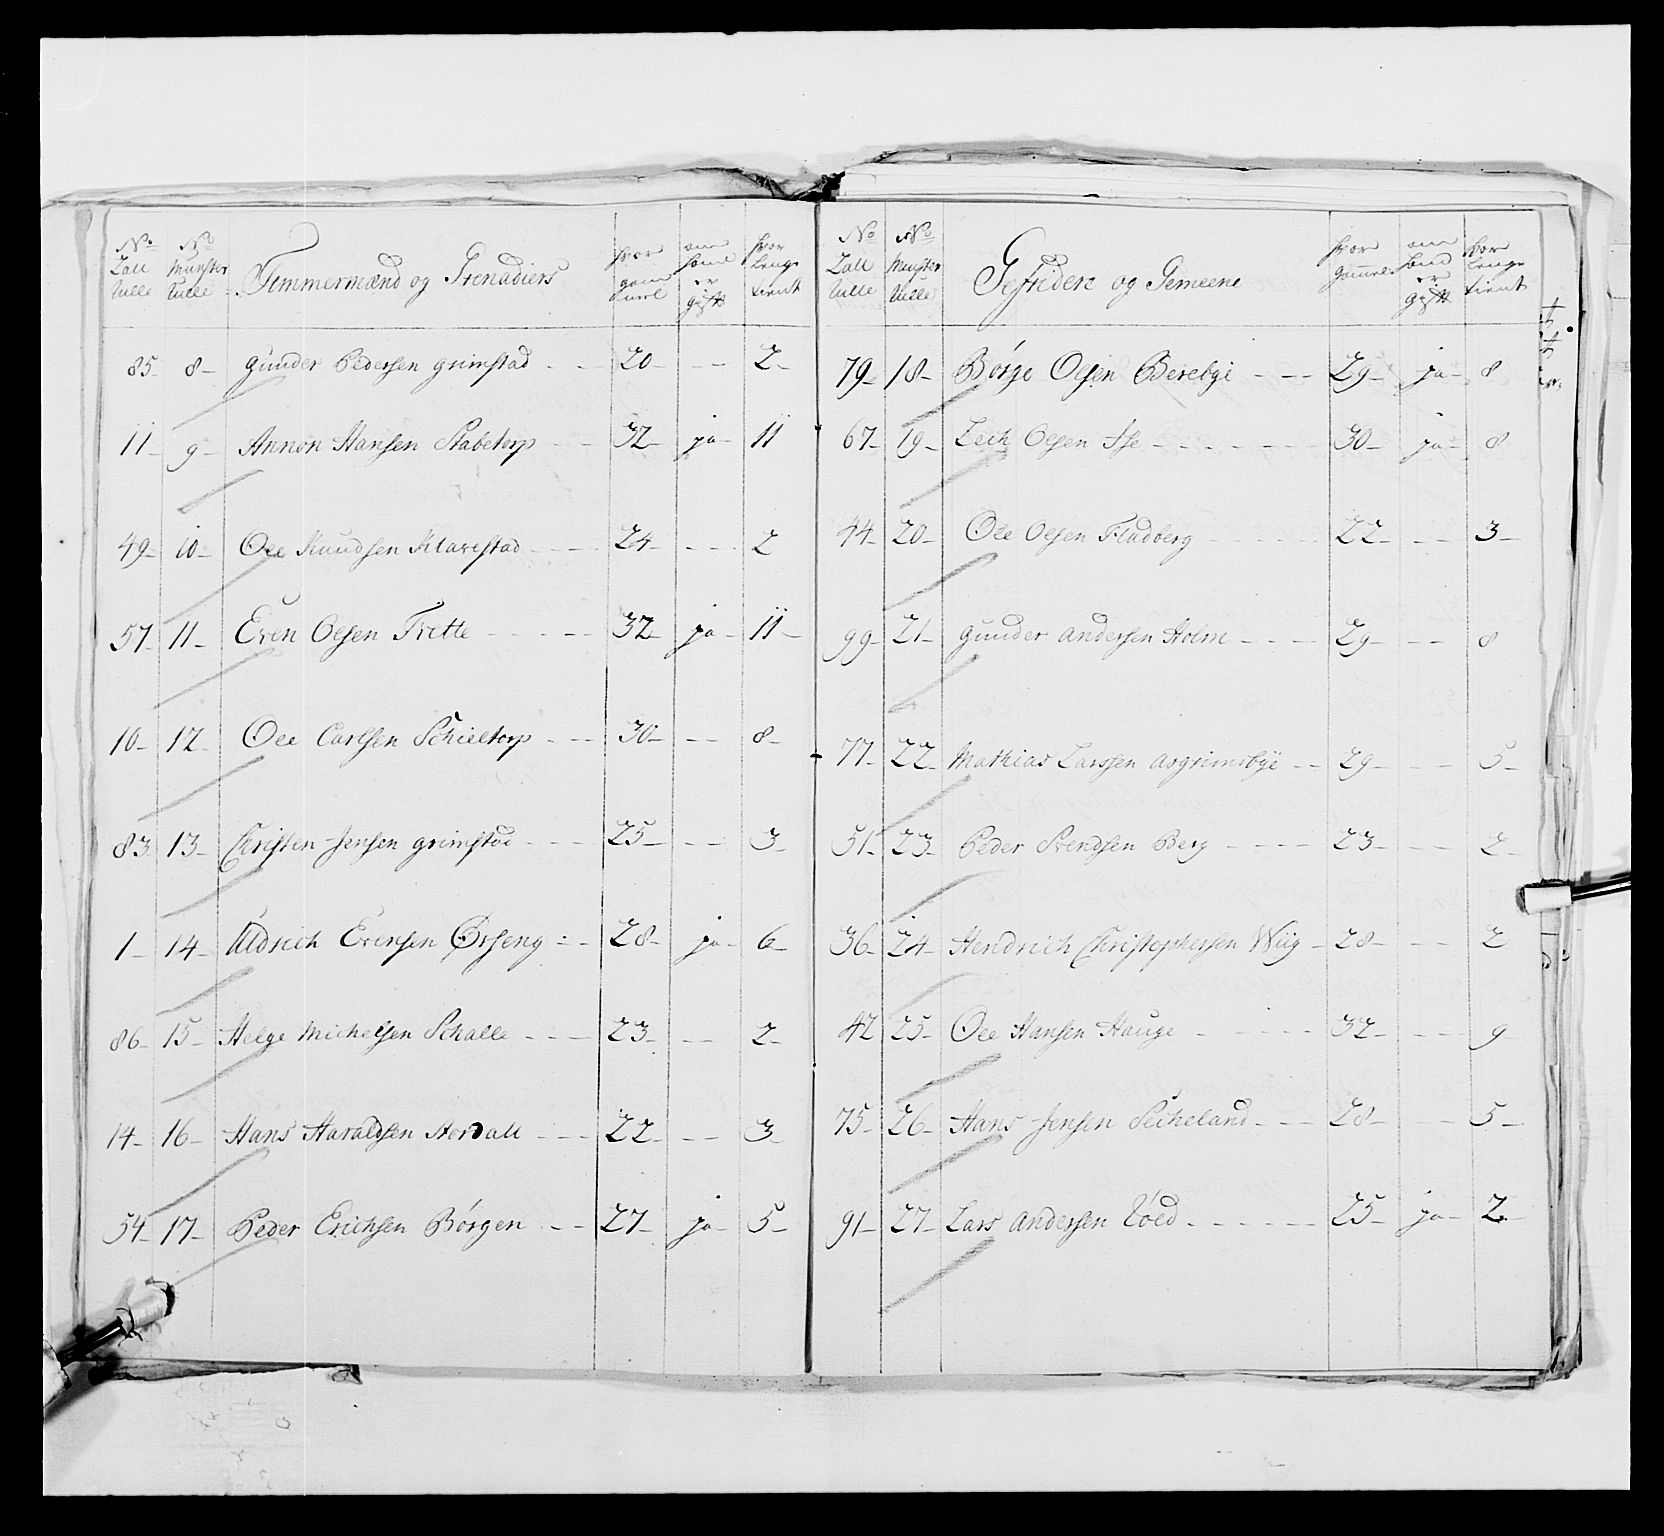 No Zall Rulle | No Munster Rulle | Timmermænd og Grenadiers | hvor gammel | om hand er gift | hvor lenge tient
85 - 8 - Gunder Pedersen Grimstad - - 20 - - - 2 -
11 - 9 - Annon Hansen Stabetorp - - 32 - ja - 11
49 - 10 - Ole Knudsen Klavestad - - - 24 - - - 2
57 - 11 - Even Olsen Tvette - - - - 32 - ja - 11 -
10 - 12 - Ole Carlsen Schieltorp - - 30 - - - 8 -
83 - 13 - Christen Jensen Grimstad - - - 25 - - - 3 -
1 - 14 - Uldrich Evensen Ørseng - - 28 - ja - 6 -
86 - 15 - Helge Michelsen Schalle - - - 23 - - - 2 -
14 - 16 - Hans Haraldsen Nordall - - - 22 - - - 3 -
54 - 17 - Peder Erichsen Børgen - - 27 - ja - 5 -
No Zall Rulle | No Munster Rulle | Gefridere og Gemeene | hvor gamel | om hand er gift | hvor lenge tient
79 - 18 - Børge Olsen Berebye - - - 29 - ja - 8
67 - 19 - Lech Olsen Ise - - - - - - 30 - ja - 8
44 - 20 - Ole Olsen Fladberg - - - - - 22 - - - 3 -
99 - 21 - Gunder Andersen Holm - - - - 29 - - - 8
77 - 22 - Mathias Larssen Asgrimsbye - - 29 - - - 5 -
51 - 23 - Peder Svendsen Berg - - - - 23 - - - 2 -
36 - 24 - Hendrich Christophersen Wiig - 28 - - - 2
42 25 - Ole Hansen Hauge - - - - - 32 - - - 9
75 - 26 - Hans Jensen Sicheland - - - 28 - - - 5 -
91 - 27 - Lars Andersen Røed - - - - - - 25 - ja - 2 -